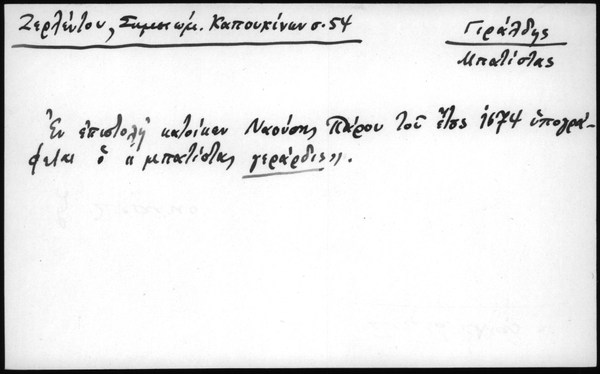 Ζερλέντου, Σημειώμ. Καπουκίνων σ. 54
Γιράλδης
Μπατίστας
Ἐν ἐπιστολῇ κατοίκων Ναούσης Πάρου τοῦ ἔτους 1674 ὑπογρά-
φεται ὁ «μπατίστας γεράρδις».